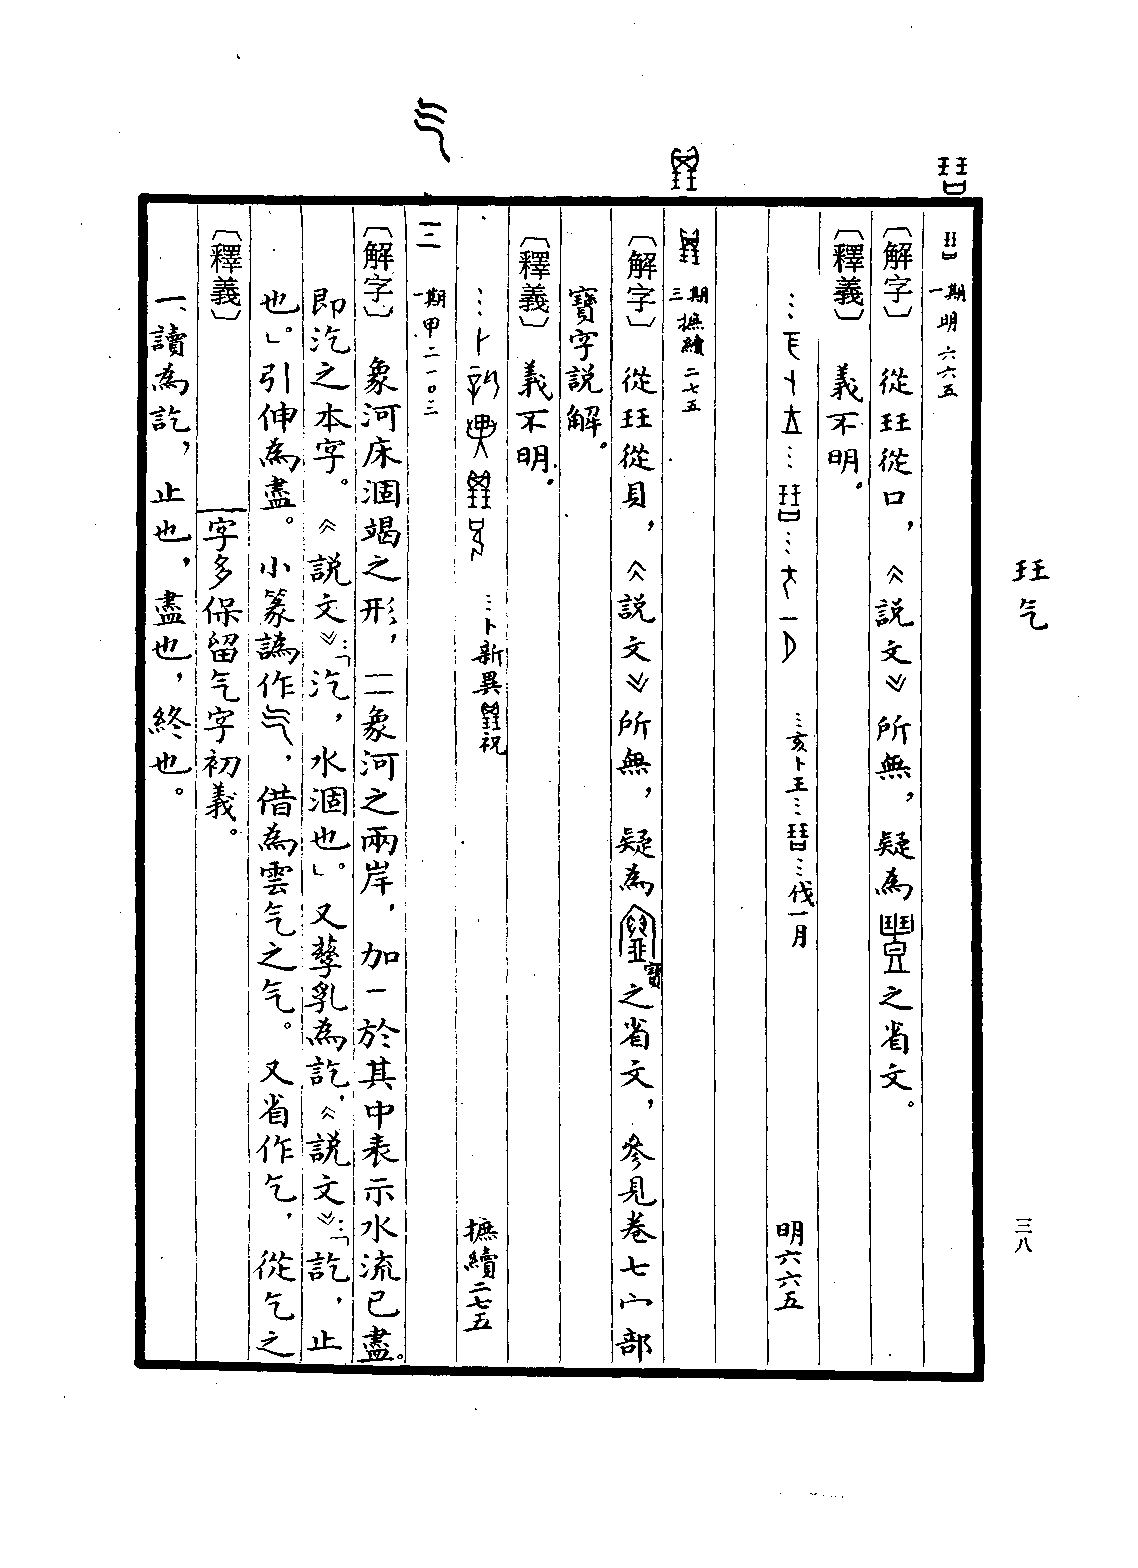 玨气
三八
一期 明六六五
〔解字〕 從玨從口，《說文》所無，疑為之省文。
〔釋義〕 義不明。
…亥卜王……伐一月 明六六五
三期 摭續二七五
〔解字〕 從玨從貝，《說文》所無，疑為寶之省文，參見卷七宀部
寶字說解。
〔釋義〕 義不明。
…卜新異祝 摭續二七五
一期 甲二一〇三
〔解字〕 象河床涸竭之形，二象河之兩岸，加一於其中表示水流已盡。
即汔之本字。《說文》：「汔，水涸也」。又孳乳為訖，《說文》：「訖，止
也。」引伸為盡。小篆譌作气，借為雲气之气。又省作乞，從乞之
字多保留气字初義。
〔釋義〕
一、讀為訖，止也，盡也，終也。